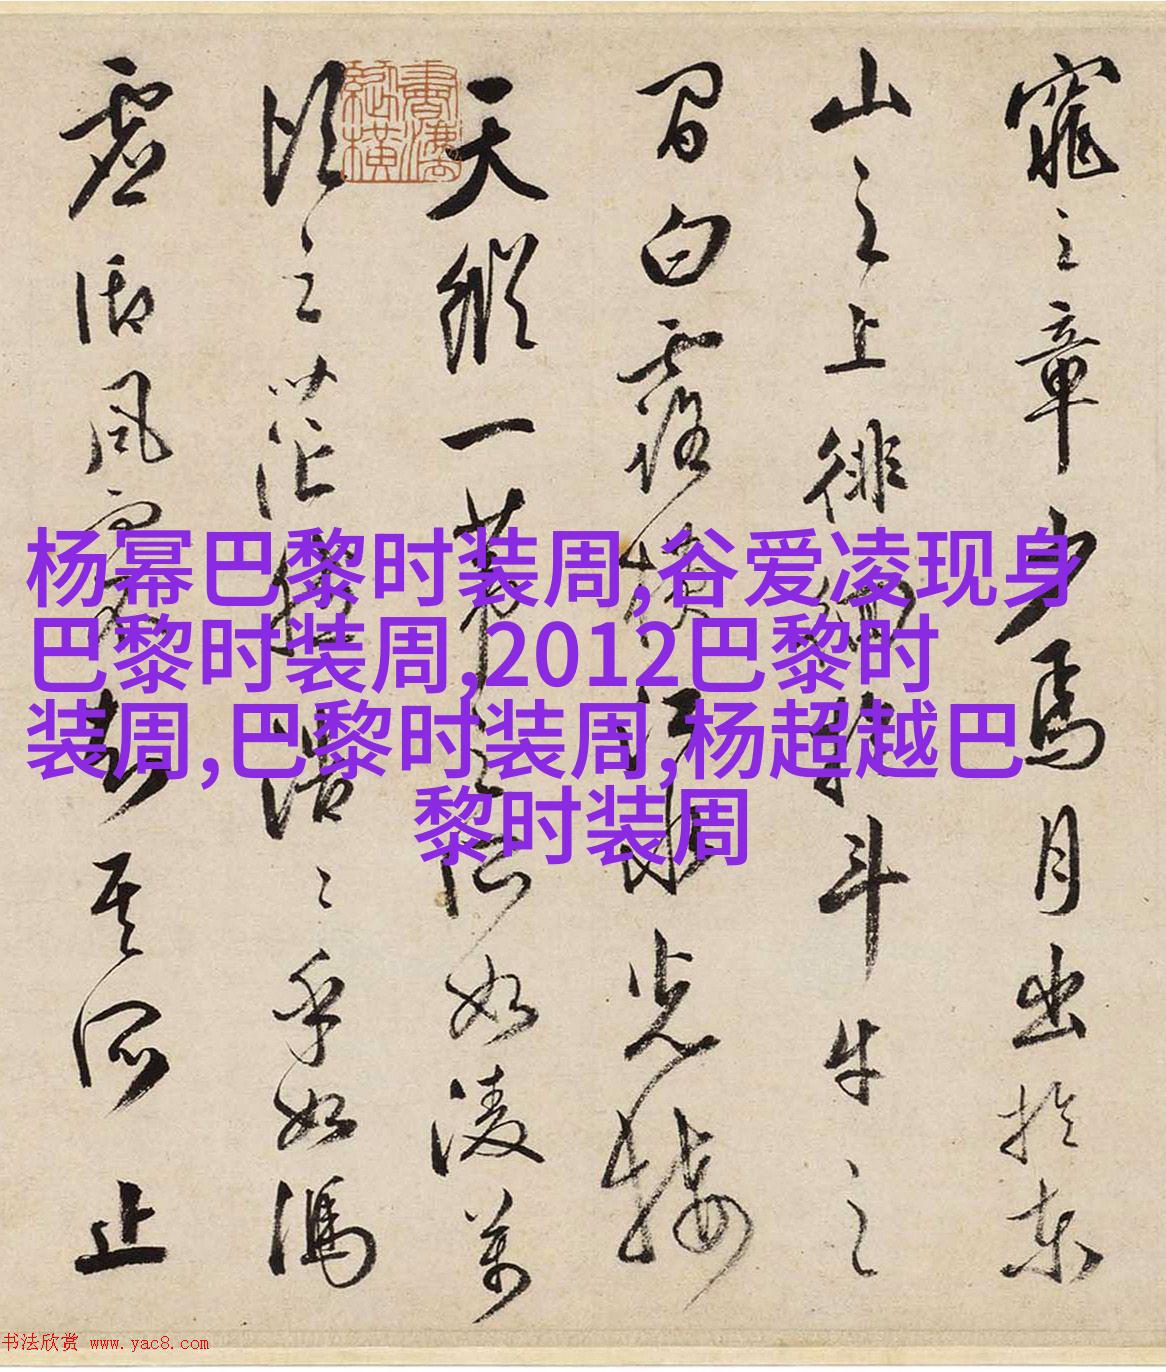 窕之章少焉月出於東
山之上徘徊於斗牛之
間白露橫江水光接
天縱一葦之所如凌萬
頃之茫然浩〻乎如馮
虛御風而不知其所止
杨幂巴黎时装周,谷爱凌现身
巴黎时装周,2012巴黎时
装周,巴黎时装周,杨超越巴
黎时装周
书法欣赏 www.yac8.com